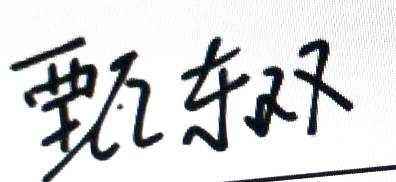 甄东双